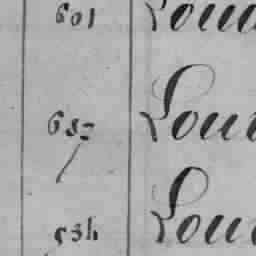 601 Lou
682 Lou
534 Lou